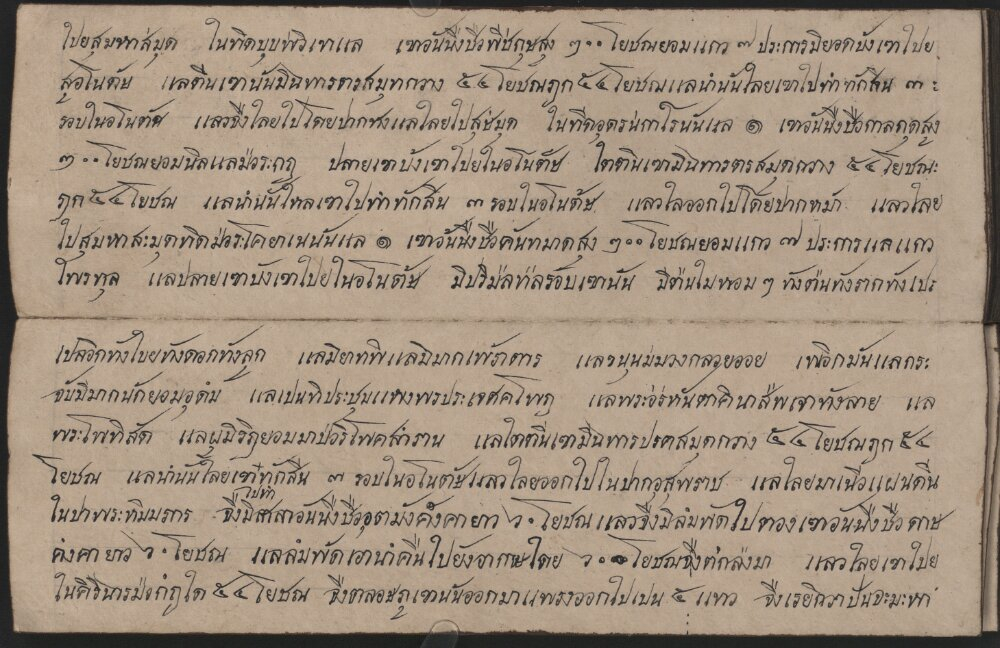 ไปยสุมหาส่มุด ในทิดบุบพ่วิเทแล เขาอันนึ่งชืวพิชกุษสูง ๖๐๐ โยชณยอมแกว ๗ ประการมียอดบังเขาไปย
สูอโนต้ษ แลตืนเขานันมีนทารตรสมุทกวาง ๕๔ โยชณฦก ๕๔ โยชณแลนำนันไลยเขาไปทำทักสีน ๓
รอบในอโนต้ษ แลวจึงไลยไปโดยปากชงแลไลยไปสุส่มุด ในทีดอุดรนกาโรนันแล ๑ เขาอันนึ่งชืวกาลกุดสูง
๖๐๐ โยชณยอมนิลแลม่วระกฎ ปลายเขาบังเขาไปยในอโนต้ษ ใตตีนเขามีนทารตรสมุดกวาง ๕๔ โยชณะ
ฦก ๕๔ โยชณ แลนำนันไหลเขาไปทำทักสีน ๓ รอบในอโนต้ษ แลวไลออกไปโดยปากหม้า แลวไลย
ไปสุมหาสะมุดทิดม่วระโคยาเนนันแล ๑ เขาอันนึ่งชืวคันทมาดสูง ๖๐๐ โยชณยอมแกว ๗ ประการแลแกว
ไพรทุล แลปลายเขาบังเขาไปยในอโนต้ษ มีปริม่ลท่ลรอบเขานัน มีต้นไมหอม ๆ ทังต้นทังรากทังเปร
เปลอิกทังไบยทังดอกทังลูก แลมียาทพีแลมีมากเพ้รักตาร แลขนุนม่มวงกลวยออย เผือกมันแลกระ
จับมีมากนักยอมอุด่ม แลเปนทีประชุมแหงพรประเจศคโพฎ แลพระอ่รหันตาคินาส้พเจาทังลาย แล
พระโพทิสัด แลผูมิริฎยอมมาป่วริโพคสำราน แลใตตีนเขามีนทารปรตสมุดกวาง ๕๔ โยชณฦก ๕๔
โยชณ แลนำนันไลยเขาไปทำทักสีน ๓ รอบในอโนต้ษแลวไลยออกไปในปากอุสุพราช แลไลยมาเนืวแผนดีน
ในปาพระหิมมรการ จึงมีสีลาอันนึ่งชืวอุตมังค่งคายาว ๖๐ โยชณ แลวจึงมีลํมพัดไปทองเขาอันนึ่งชืวดาษ
ค่งคา ยาว ๖๐ โยชณ แลลํมพัดเอานำคืนไปยังอากาษโดย ๖๐๐ โยชณจึงต่กล่งมา แลวไลยเขาไปย
ในคิรีนารม่วก่ฎใด ๕๔ โยชณ จึงตลอษภูเขานันออกมาแพรงออกไปเปน ๕ แทว จึงเรียกวาปันจะมะหา